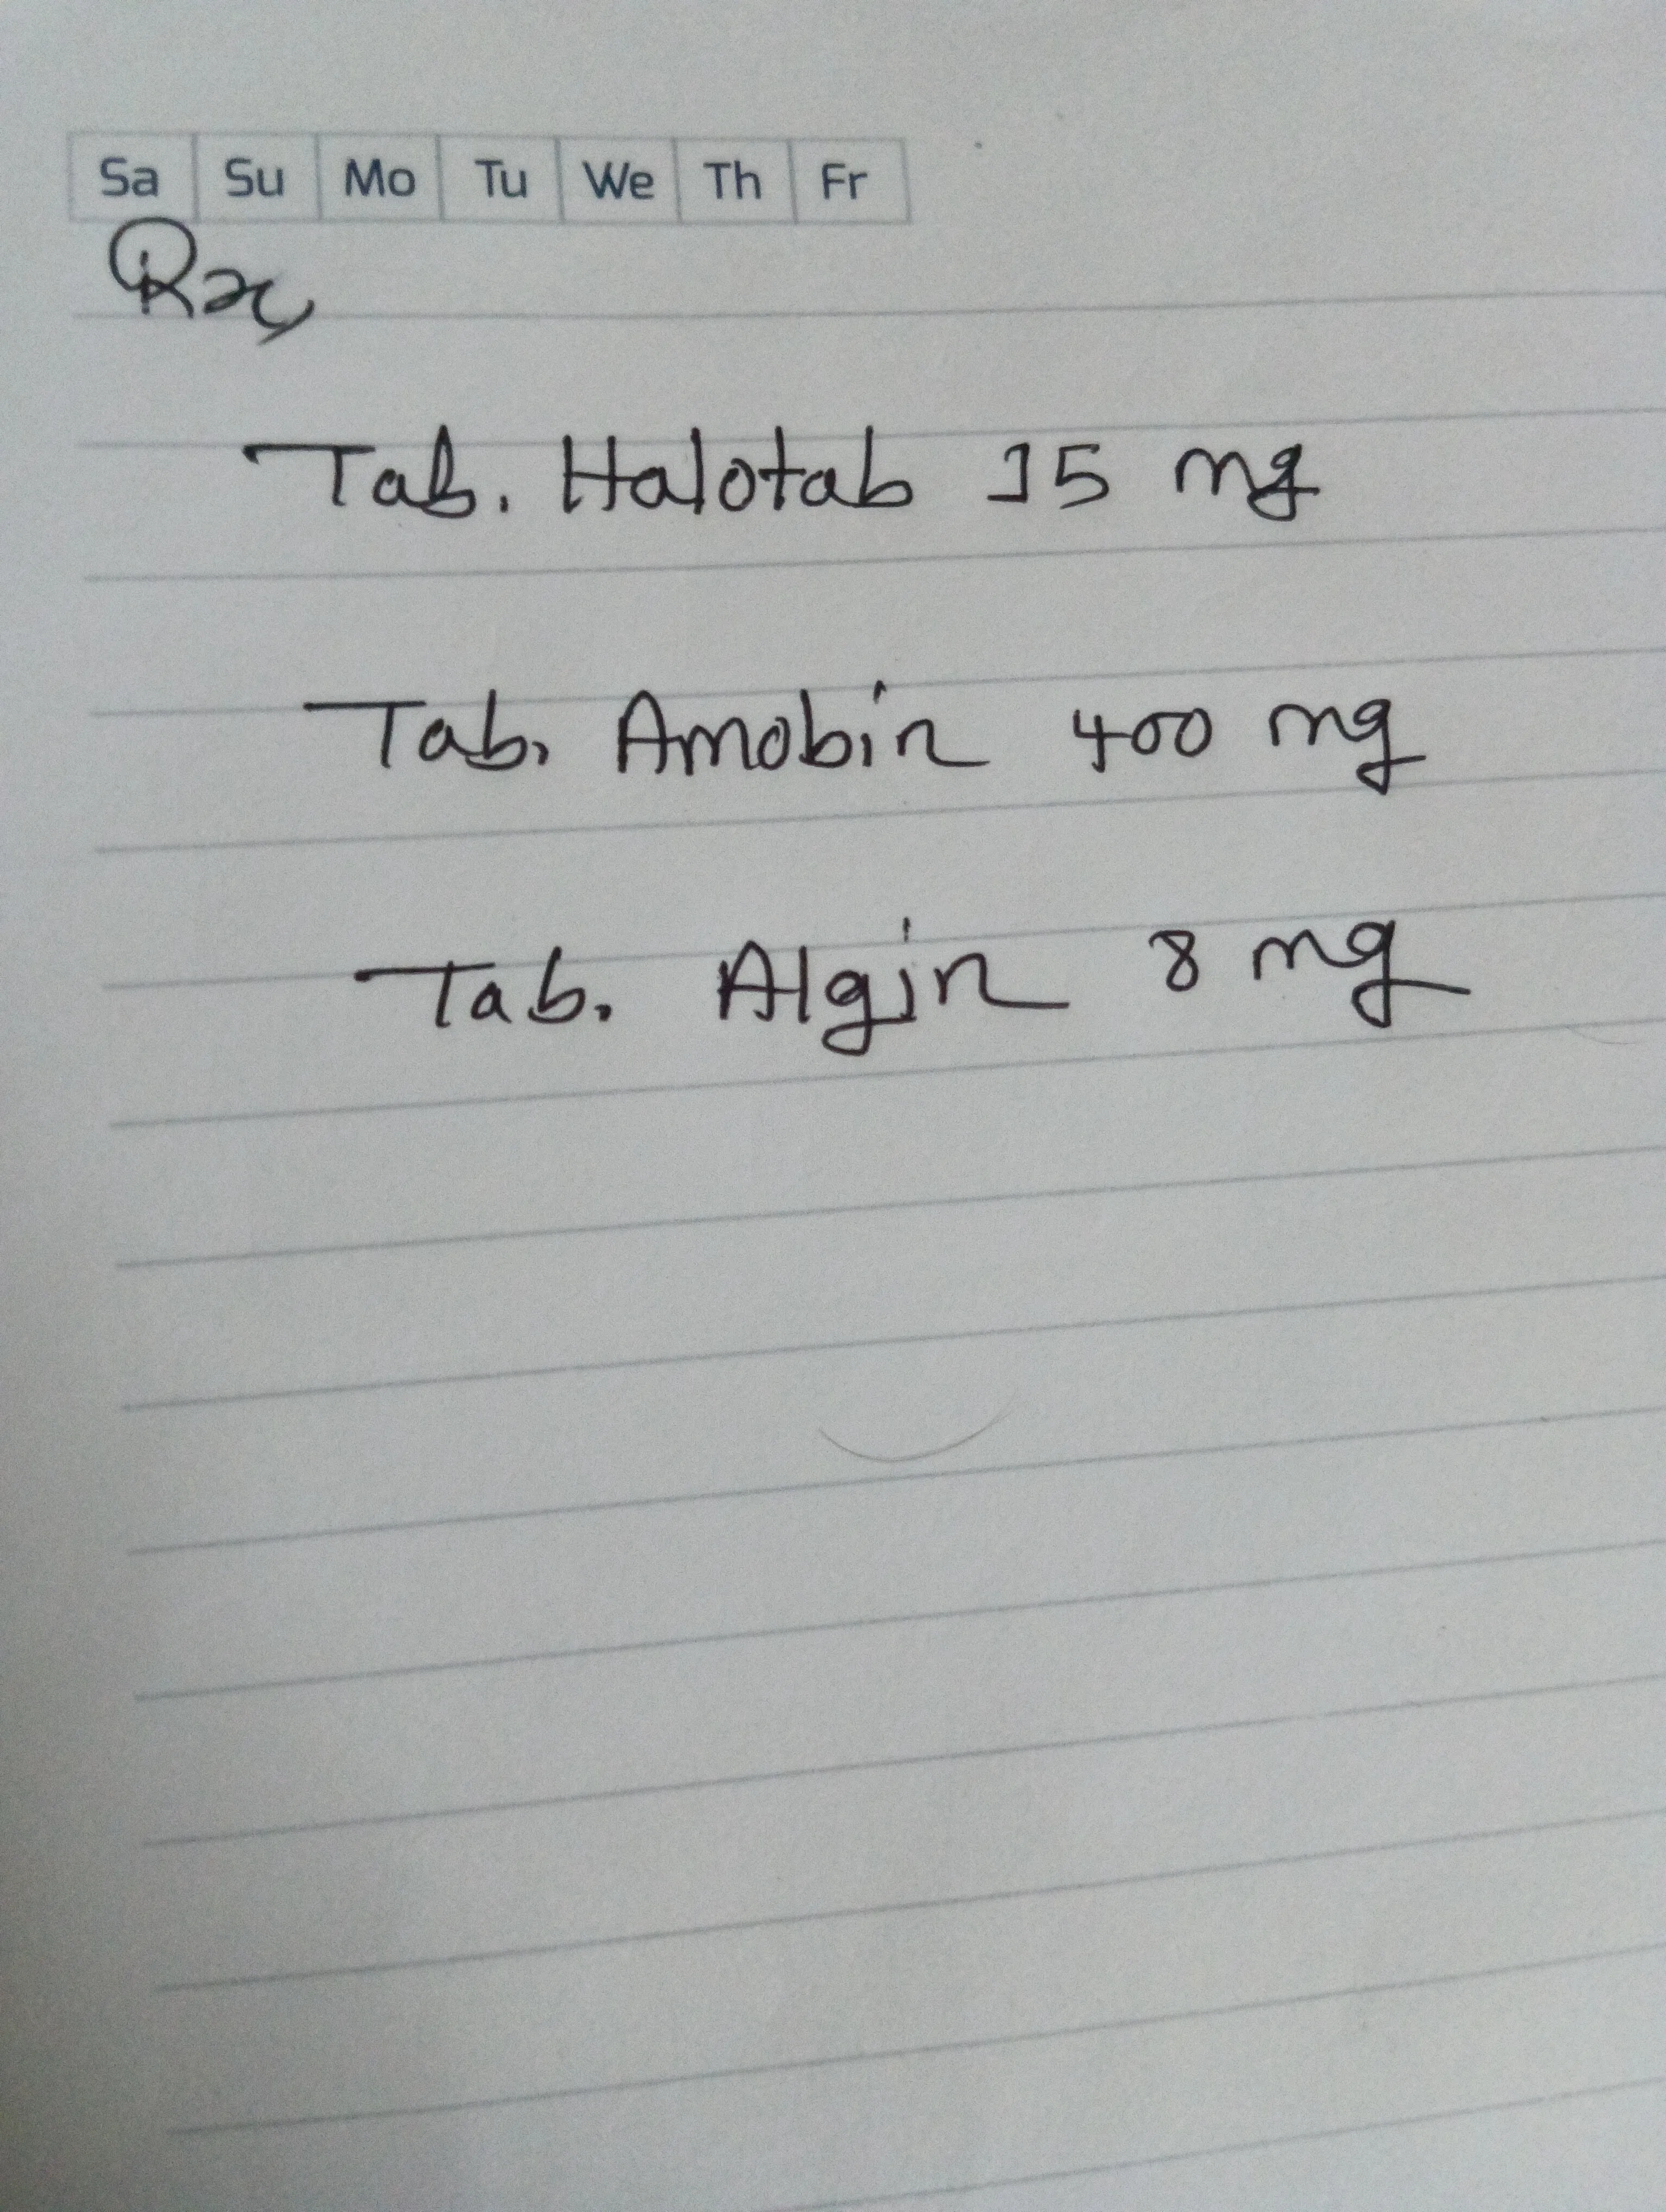 Sa Su Mo Tu We Th Fr
Rx,
Tab. Halotab 15 mg
Tab. Amobin 400 mg
Tab. Algin 8 mg